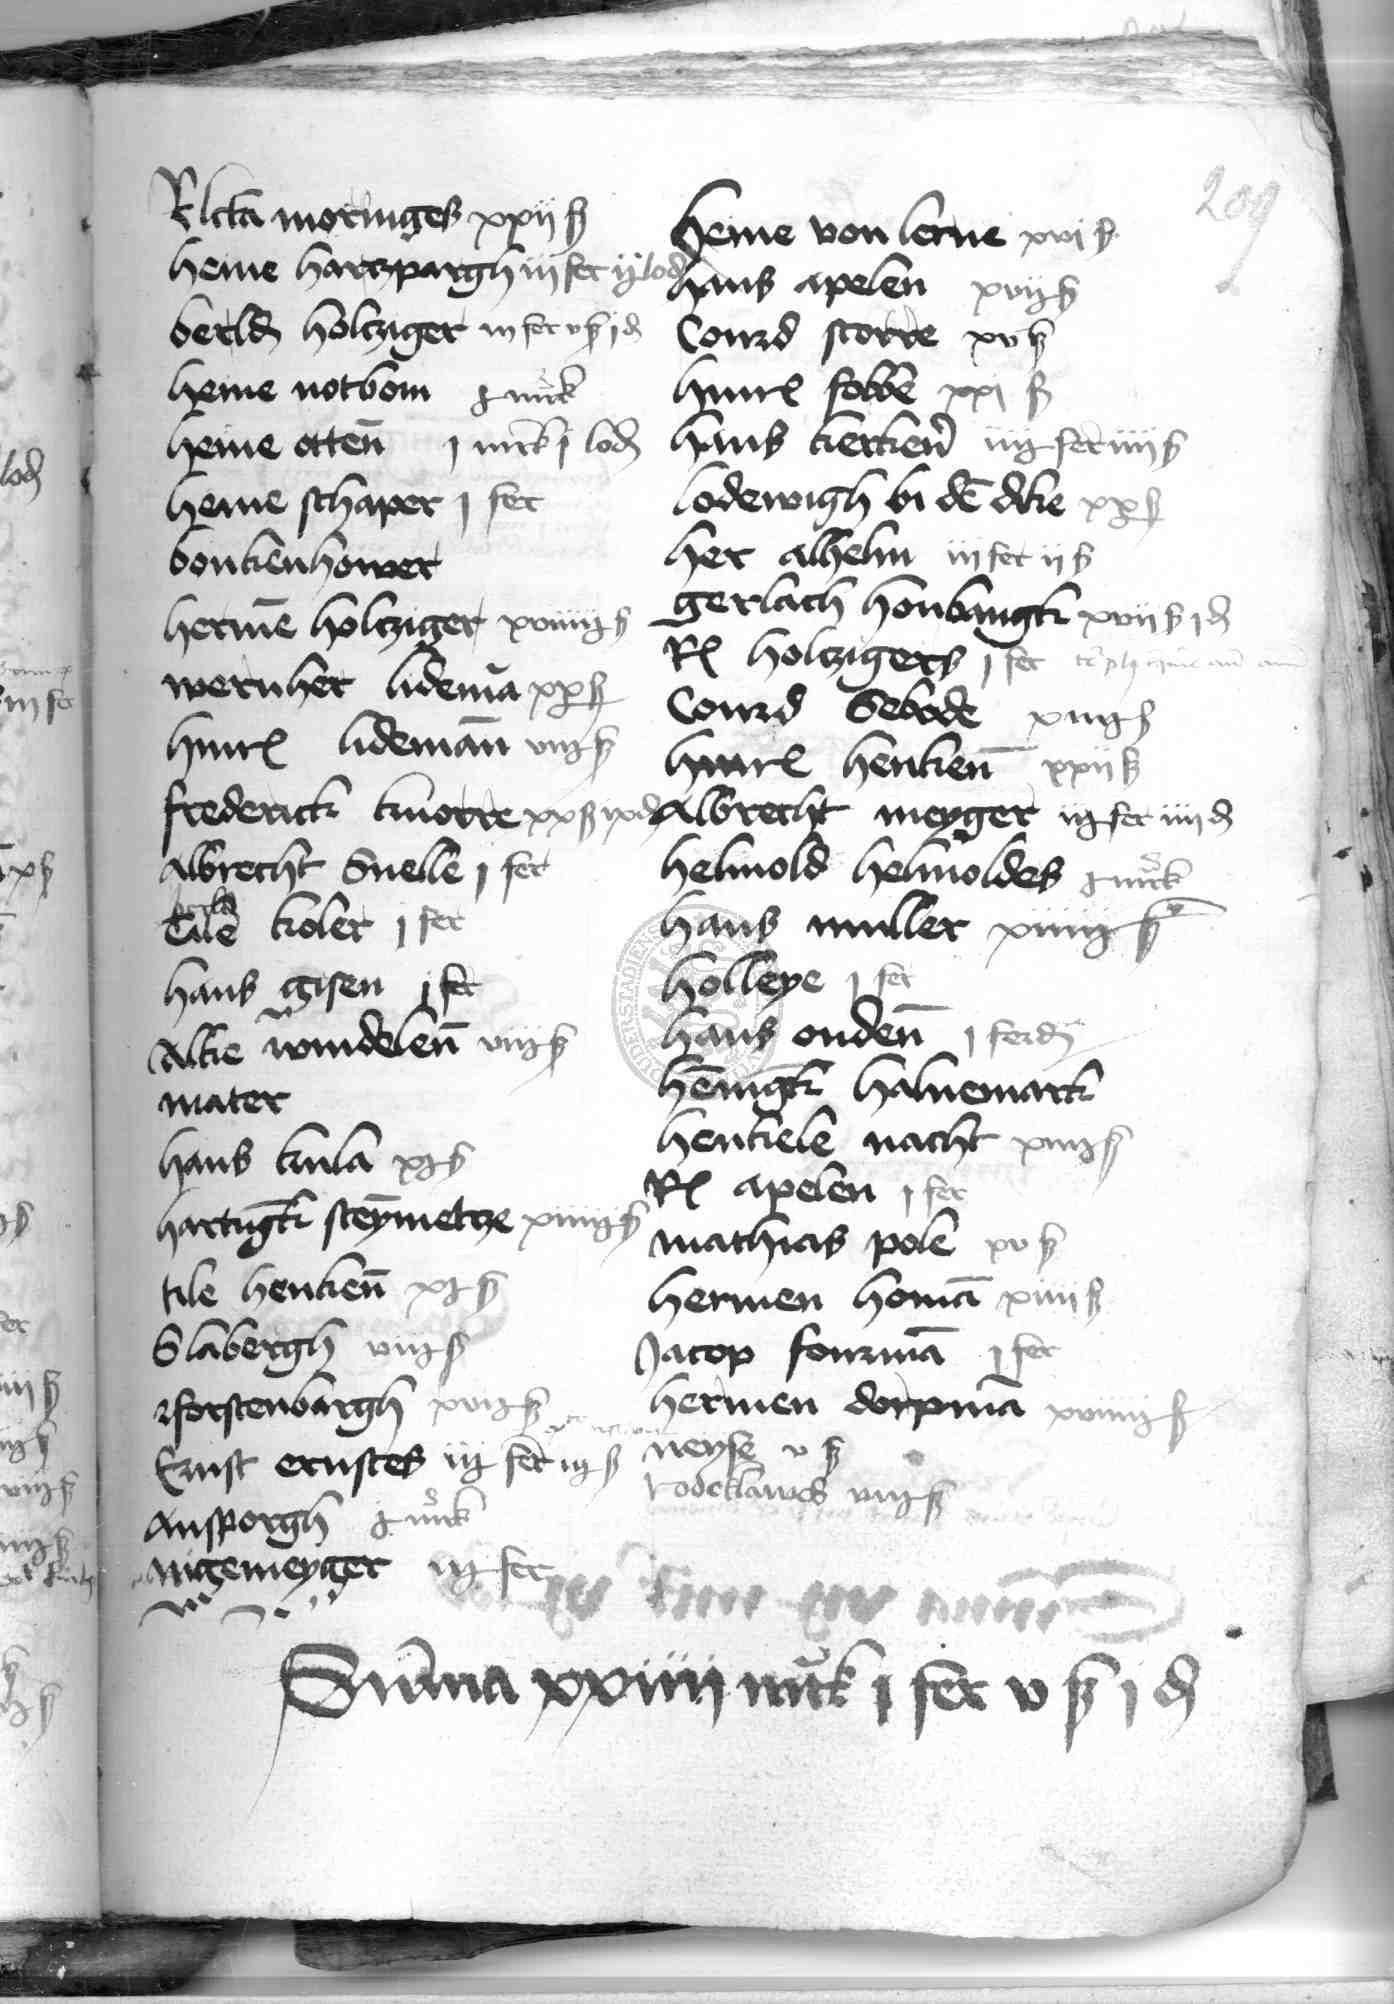 209
Rlcta moringes xxii ß
heine hartzpargh iii fer ij lod
berld holtziger iii fer v ß i d
heine notbom j mrck
heine otten̄ i mrck i lod
heine schaper i fer
bonkenhower
hermē holtziger xviiij ß
wernher lidemā xx ß
hinr lidemān viij ß
frederick knorre xx ß ix d
Albrecht Snelle i fer
Tile koler i fer
hans gisen i fer
Alke windelen̄ viij ß
mater
hans kula xj ß
hartūgk steȳmetze xiiij ß
tile henken̄ xj ß
Slabergh viij ß
forstenbargh xvij ß
Ernst ernstes iij fer iij ß
Ansporgh j mrck
nigemeyger iij fer
heine von lerne xvi ß
hans apelen xvij ß
Conrd storre xv ß
hinr fobbe xxi ß
hans kerken̄ iij fer iiii ß
lodewigh bi dē dike xx ß
her alhelm iii fer ii ß
gerlach honbangk xvii ß i d
R holtzigers i fer
Conrd Sebode xiij ß
hinr henken̄ xxii ß
Albrecht meyger iij fer iiii d
helmold helmoldes j mrck
hans muller xiiij ß
holleye i fer
hans onden̄ i ferd
hēnigk halnemark
henkele nacht xiij ß
R apelen i fer
mathias pole xv ß
hermen homā xiiii ß
Jacop fonrmā i fer
hermen dorpmā xviiij ß
neyse v ß
rodeklawes viij ß
Sūma xxiiii mrck i fer v ß i d